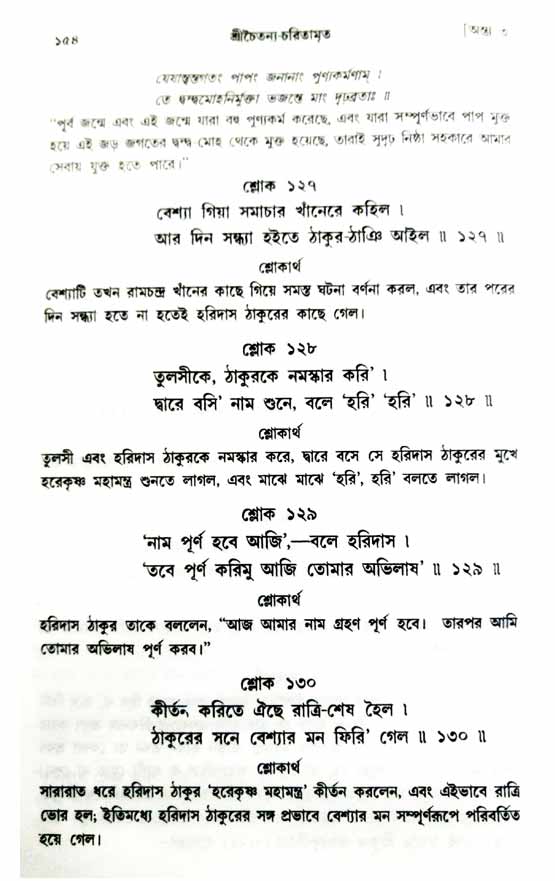 ১৫৪ শ্রীচৈতন্য-চরিতামৃত [অন্ত্য ৩
যেষাং ত্বন্তগতং পাপং জনানাং পুণ্যকর্মণাম্ ।
তে দ্বন্দ্বমোহনির্মুক্তা ভজন্তে মাং দৃঢ়ব্রতাঃ ॥
"পূর্ব জন্মে এবং এই জন্মে যারা বহু পুণ্যকর্ম করেছে, এবং যারা সম্পূর্ণভাবে পাপ মুক্ত
হয়ে এই জড় জগতের দ্বন্দ্ব মোহ থেকে মুক্ত হয়েছে, তারাই সুদৃঢ় নিষ্ঠা সহকারে আমার
সেবায় যুক্ত হতে পারে।"
শ্লোক ১২৭
বেশ্যা গিয়া সমাচার খাঁনেরে কহিল ।
আর দিন সন্ধ্যা হইতে ঠাকুর-ঠাঞি আইল ॥ ১২৭ ॥
শ্লোকার্থ
বেশ্যাটি তখন রামচন্দ্র খাঁনের কাছে গিয়ে সমস্ত ঘটনা বর্ণনা করল, এবং তার পরের
দিন সন্ধ্যা হতে না হতেই হরিদাস ঠাকুরের কাছে গেল।
শ্লোক ১২৮
তুলসীকে, ঠাকুরকে নমস্কার করি' ।
দ্বারে বসি' নাম শুনে, বলে 'হরি' 'হরি' ॥ ১২৮ ॥
শ্লোকার্থ
তুলসী এবং হরিদাস ঠাকুরকে নমস্কার করে, দ্বারে বসে সে হরিদাস ঠাকুরের মুখে
হরেকৃষ্ণ মহামন্ত্র শুনতে লাগল, এবং মাঝে মাঝে 'হরি', হরি' বলতে লাগল।
শ্লোক ১২৯
'নাম পূর্ণ হবে আজি',—বলে হরিদাস ।
'তবে পূর্ণ করিমু আজি তোমার অভিলাষ' ॥ ১২৯ ॥
শ্লোকার্থ
হরিদাস ঠাকুর তাকে বললেন, "আজ আমার নাম গ্রহণ পূর্ণ হবে। তারপর আমি
তোমার অভিলাষ পূর্ণ করব।"
শ্লোক ১৩০
কীর্তন করিতে ঐছে রাত্রি-শেষ হৈল ।
ঠাকুরের সনে বেশ্যার মন ফিরি' গেল ॥ ১৩০ ॥
শ্লোকার্থ
সারারাত ধরে হরিদাস ঠাকুর 'হরেকৃষ্ণ মহামন্ত্র' কীর্তন করলেন, এবং এইভাবে রাত্রি
ভোর হল; ইতিমধ্যে হরিদাস ঠাকুরের সঙ্গ প্রভাবে বেশ্যার মন সম্পূর্ণরূপে পরিবর্তিত
হয়ে গেল।